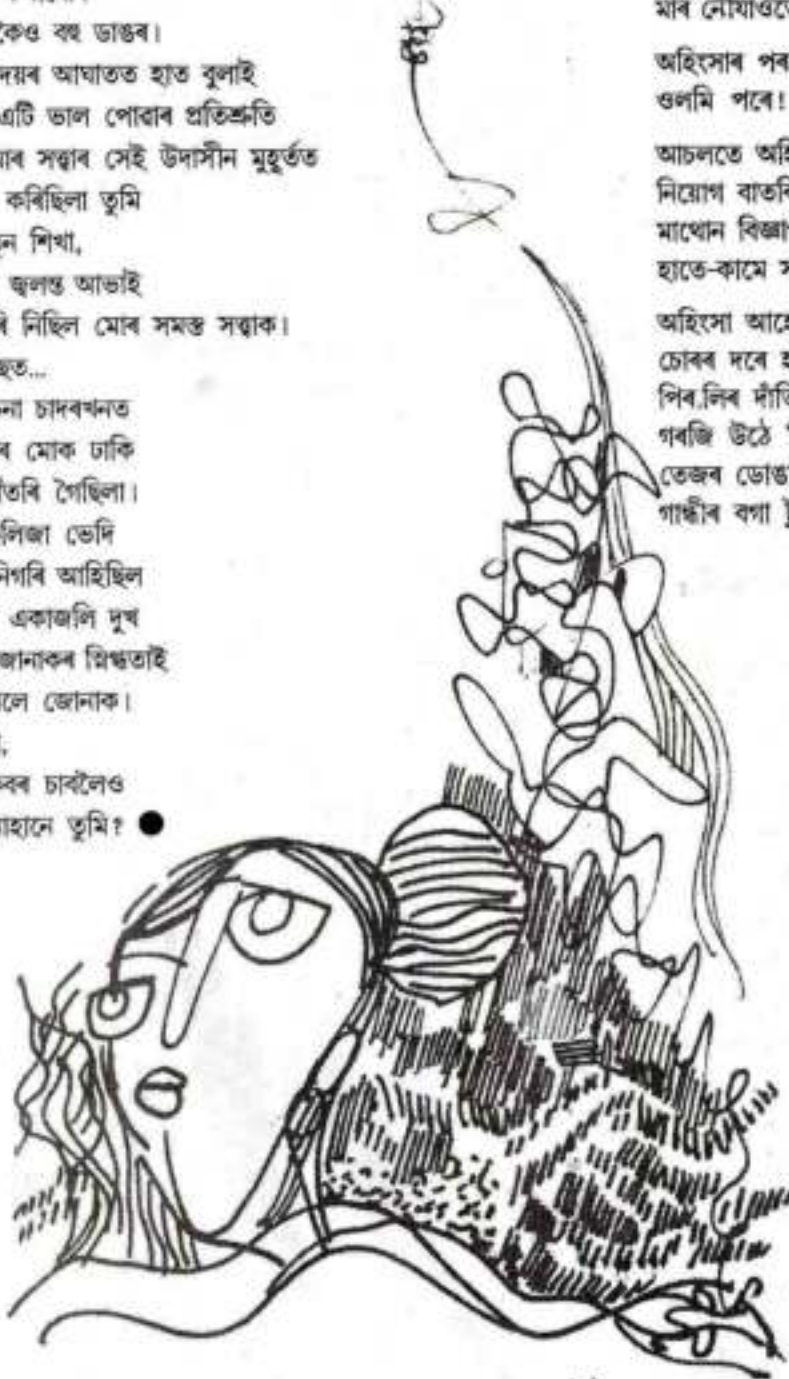 কৈও বহু ডাঙৰ।
দয়ৰ আঘাতত হাত বুলাই
এটি ভাল পোৱাৰ প্ৰতিশ্ৰুতি
াৰ সত্ত্বাৰ সেই উদাসীন মুহূৰ্তত
কৰিছিলা তুমি
ন শিখা,
জ্বলন্ত আভাই
ৰি নিছিল মোৰ সমস্ত সত্ত্বাক।
হত...
না চাদৰখনত
ৰ মোক ঢাকি
ঁতৰি গৈছিলা।
লিজা ভেদি
নিগৰি আহিছিল
একাজলি দুখ
জোনাকৰ স্নিগ্ধতাই
লে জোনাক।
,
বৰ চাবলৈও
াহানে তুমি? ●
মাৰ নোযাওতে
অহিংসাৰ পৰ
ওলমি পৰে!
আচলতে অহি
নিয়োগ বাতৰি
মাথোন বিজ্ঞা
হাতে-কামে স
অহিংসা আহে
চোৰৰ দৰে হ
পিৰ.লিৰ দাঁতি
গৰজি উঠে
তেজৰ ডোঙা
গান্ধীৰ বগা টু